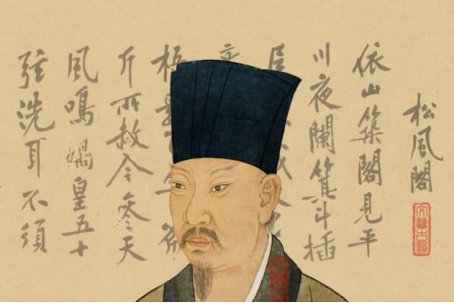 松風閣
依山築閣見平
川夜闌箕斗插
屋
意
梧
斤所赦今參天
風鳴媧皇五十
弦洗耳不須